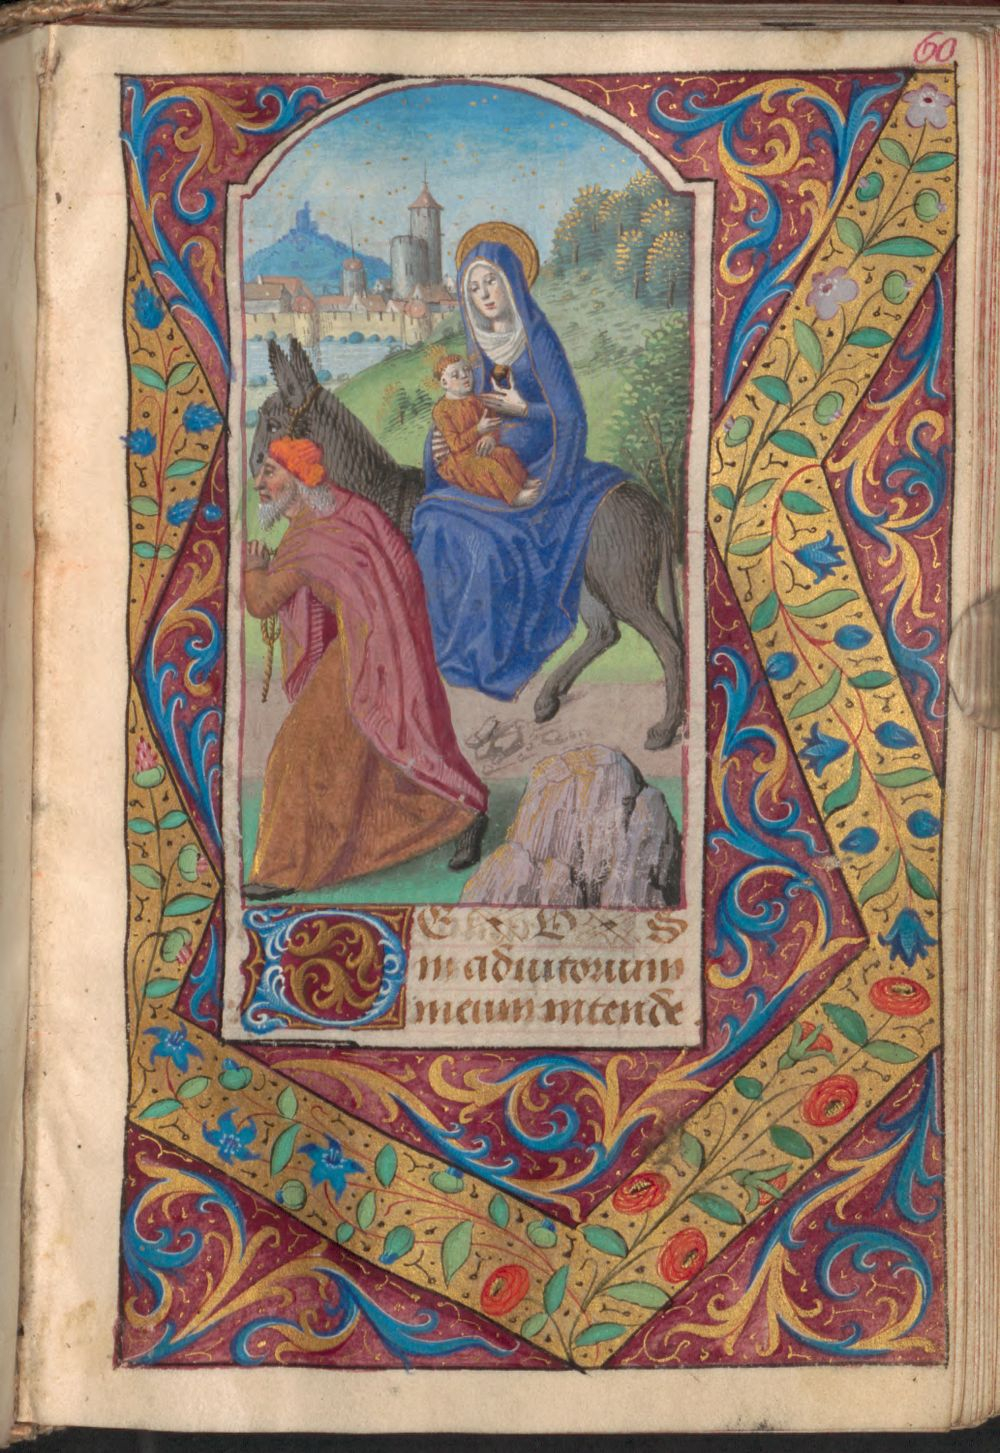 60
DEVS
in adiutorium
meum intende